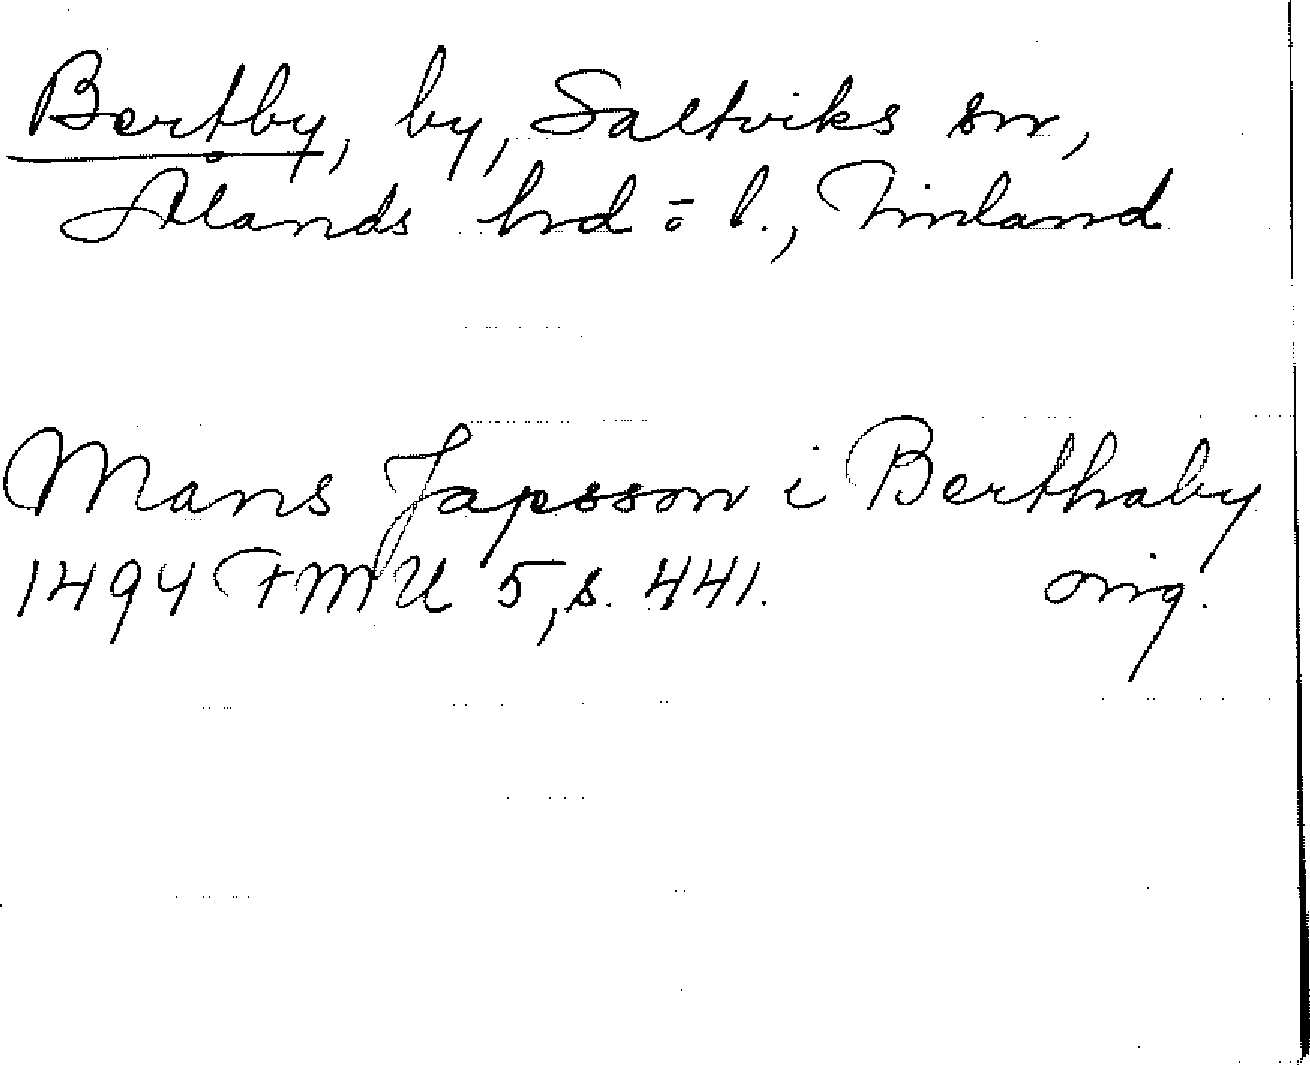 Bertby, by, Saltviks sn,
Ålands hd o. l., Finland
Mans Japsson i Berthaby
1494 FMU 5, s. 441. orig.